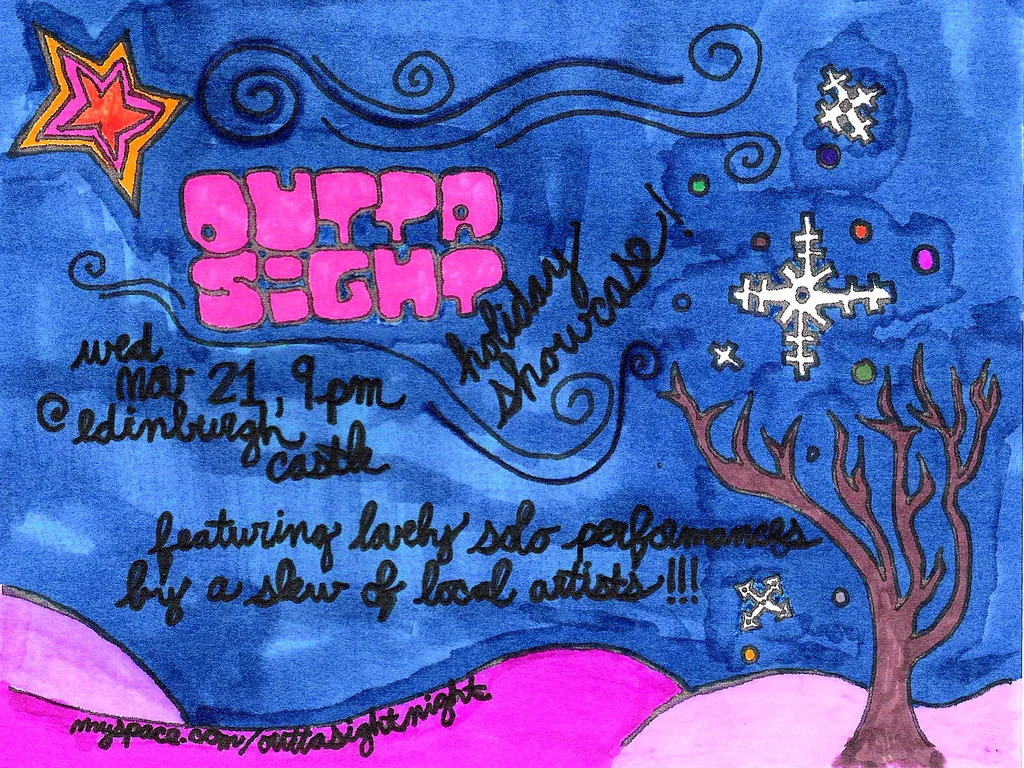 OUTTA
SIGHT
holiday
showcase!
wed
nov 21, 9pm
@ edinburgh
castle
featuring lovely solo performances
by a slew of local artists!!!
myspace.com/outtasightnight